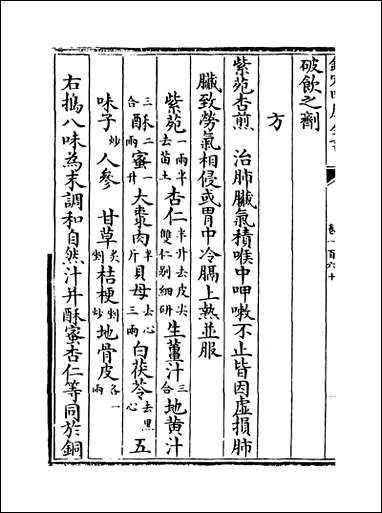 欽定四庫全書
卷一百六十
破飲之劑
方
紫菀杏煎　治肺臟氣積喉中呷嗽不止皆因虛損肺
臟致勞氣相侵或胃中冷膈上熱並服
紫菀一兩半去苗土　杏仁半升去皮尖雙仁别細研　生薑汁三合　地黄汁
三合　酥二兩　蜜一升　大棗肉半斤　貝母去心三兩　白茯苓去黑心　五
味子炒　人參　甘草炙剉　桔梗剉炒　地骨皮各一兩
右搗八味為末調和自然汁并酥蜜杏仁等同於銅